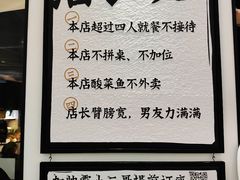 一
本店超过四人就餐不接待
二
本店不拼桌、不加位
三
本店酸菜鱼不外卖
四
店长臂膀宽，男友力满满